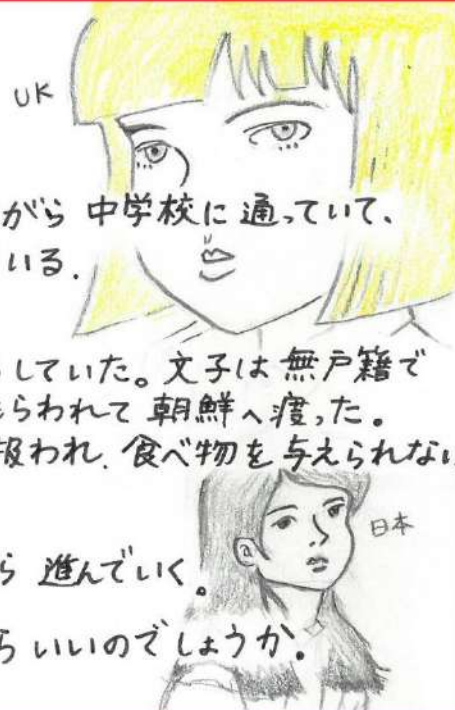 UK
がら 中学校に 通っていて、
いる.
していた。文子は 無戸籍で
らわれて 朝鮮へ渡った。
扱われ、食べ物を与えられない
日本
ら 進んでいく。
らいいのでしょうか.